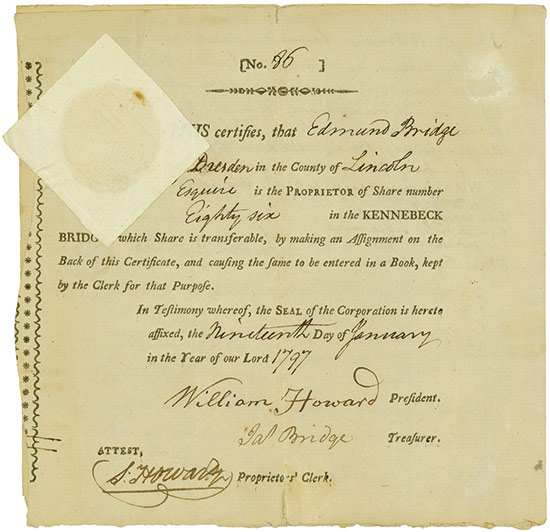 [No. 86 ]
HIS certifies, that Edmund Bridge
Dresden in the County of Lincoln
Esquire is the PROPRIETOR of Share number
Eighty six in the KENNEBECK
BRIDGE which Share is transferable, by making an Assignment on the
Back of this Certificate, and causing the same to be entered in a Book, kept
by the Clerk for that Purpose.
In Testimony whereof, the SEAL of the Corporation is hereto
affixed, the Nineteenth Day of January
in the Year of our Lord 1797
William Howard President.
Jas Bridge Treasurer.
ATTEST,
S. Howard Proprietors' Clerk.